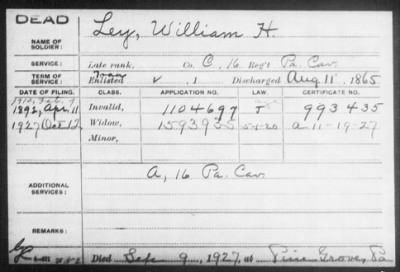 DEAD
NAME OF SOLDIER: Ley, William H.
SERVICE: Late rank, Co. C, 16 Reg't Pa. Cav.
TERM OF SERVICE: Enlisted , 1 Discharged Aug 11, 1865
DATE OF FILING. CLASS. APPLICATION NO. LAW. CERTIFICATE NO.
1892, Apr. 11 Invalid, 1104697 993435
1927 Oct 12 Widow, 1593935 5-1-20 a 11-19-27
Minor,
ADDITIONAL SERVICES: A, 16 Pa. Cav.
REMARKS:
Died Sep 9, 1927, at Pine Grove, Pa